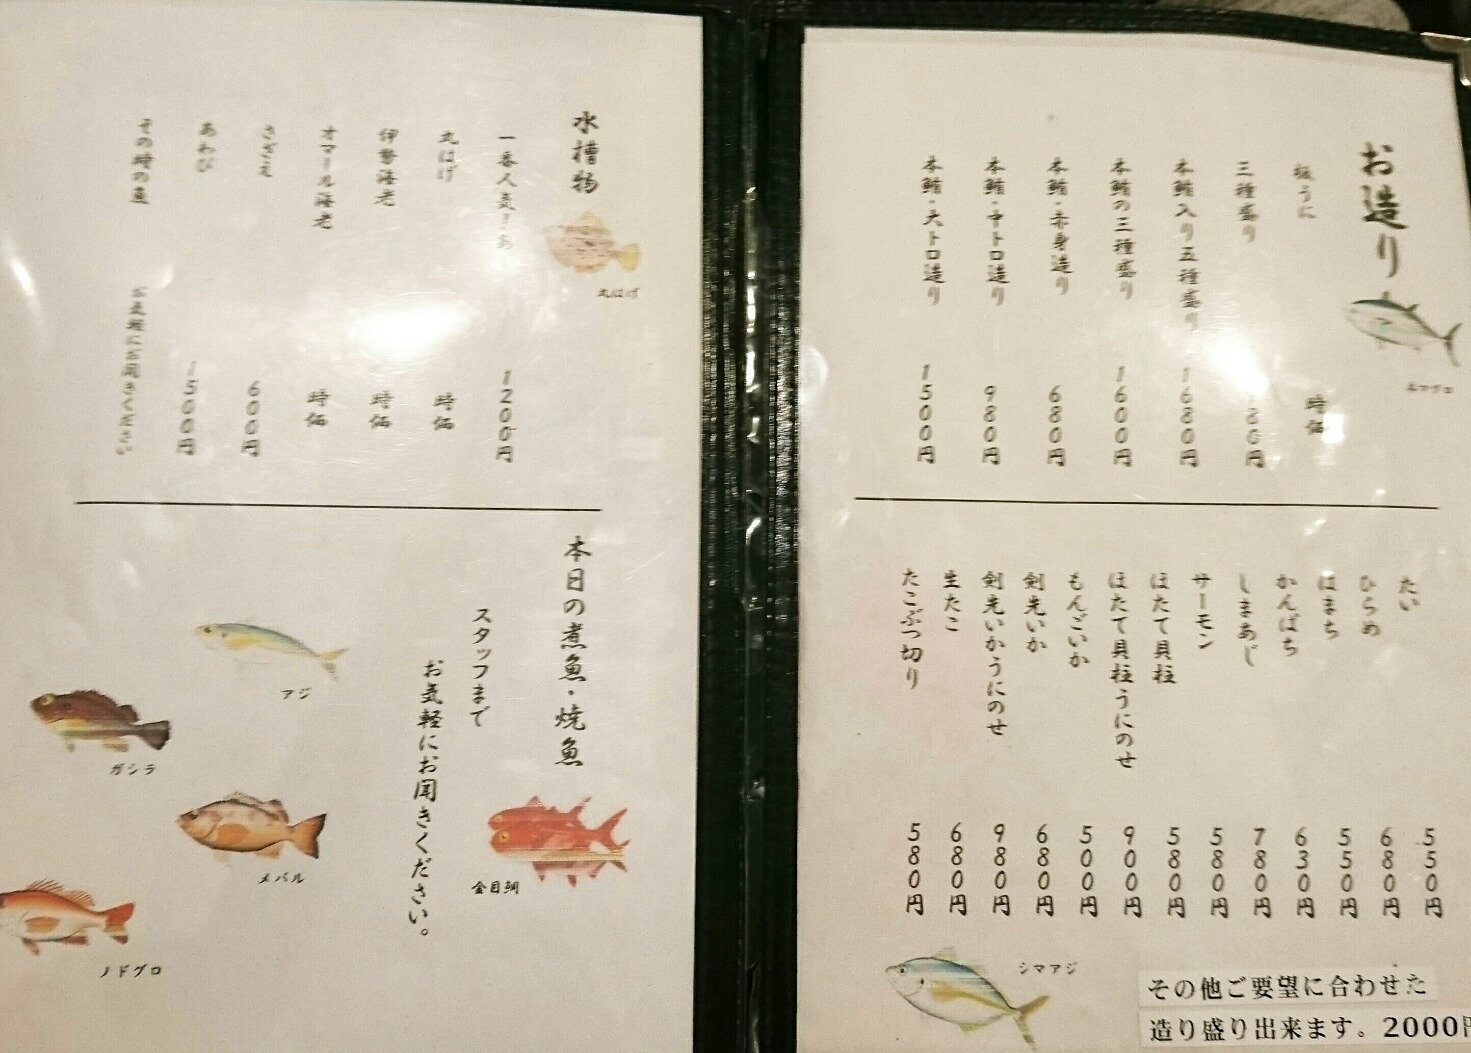 お造り
本マグロ
板うに 時価
三種盛り 80円
本鮪入り五種盛り 1680円
本鮪の三種盛り 1600円
本鮪・赤身造り 680円
本鮪・中トロ造り 980円
本鮪・大トロ造り 1500円
たい 550円
ひらめ 680円
はまち 550円
かんぱち 630円
しまあじ 780円
サーモン 580円
ほたて貝柱 580円
ほたて貝柱うにのせ 900円
もんごいか 500円
剣先いか 680円
剣先いかうにのせ 980円
生たこ 680円
たこぶつ切り 580円
シマアジ
その他ご要望に合わせた
造り盛り出来ます。2000円
水槽物
丸はげ
一番人気!あ 1200円
丸はげ 時価
伊勢海老 時価
オマール海老 時価
さざえ 600円
あわび 1500円
その時の魚 お気軽にお聞きください
本日の煮魚・焼魚
スタッフまで
お気軽にお聞きください。
アジ
ガシラ
メバル
金目鯛
ノドグロ